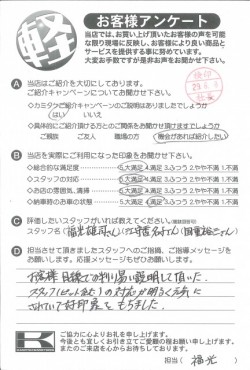 軽
お客様アンケート
当店では、お買い上げ頂いたお客様の声を可能
な限り現場に反映し、お客様により良い商品と
サービスを提供する事に努めています。
大変お手数ですが是非お声をお聞かせ下さい。
A 当店はご紹介を大切にしております。
ご紹介キャンペーンについてお聞かせ下さい。
◇カミタケご紹介キャンペーンのご説明はありましたでしょうか
はい いいえ
◇具体的にご紹介頂ける方とのご関係をお聞かせ頂けますでしょうか
ご親族 ご友人 職場の方 機会があれば紹介したい
B 当店を実際にご利用になった印象をお聞かせ下さい。
◇総合的な満足度 5.大満足 4.満足 3.ふつう 2.やや不満 1.不満
◇スタッフの対応 5.大満足 4.満足 3.ふつう 2.やや不満 1.不満
◇お店の雰囲気、清掃 5.大満足 4.満足 3.ふつう 2.やや不満 1.不満
◇納車時のお車の状態 5.大満足 4.満足 3.ふつう 2.やや不満 1.不満
C 評価したいスタッフがいれば教えてください。
スタッフ名
D 担当させて頂きましたスタッフへのご指摘、ご指導メッセージを
お願いします。応援メッセージもぜひお願いします。
お客様目線での判り易い説明して頂いた。
スタッフ の対応が明るく元気に
されていて好印象をもちました。
K
ご協力に心よりお礼を申し上げます。
今後とも宜しくお引き立てご愛顧の程お願い申し上げます。
またのご来店を心からお待ちしております。
担当( 福光 )